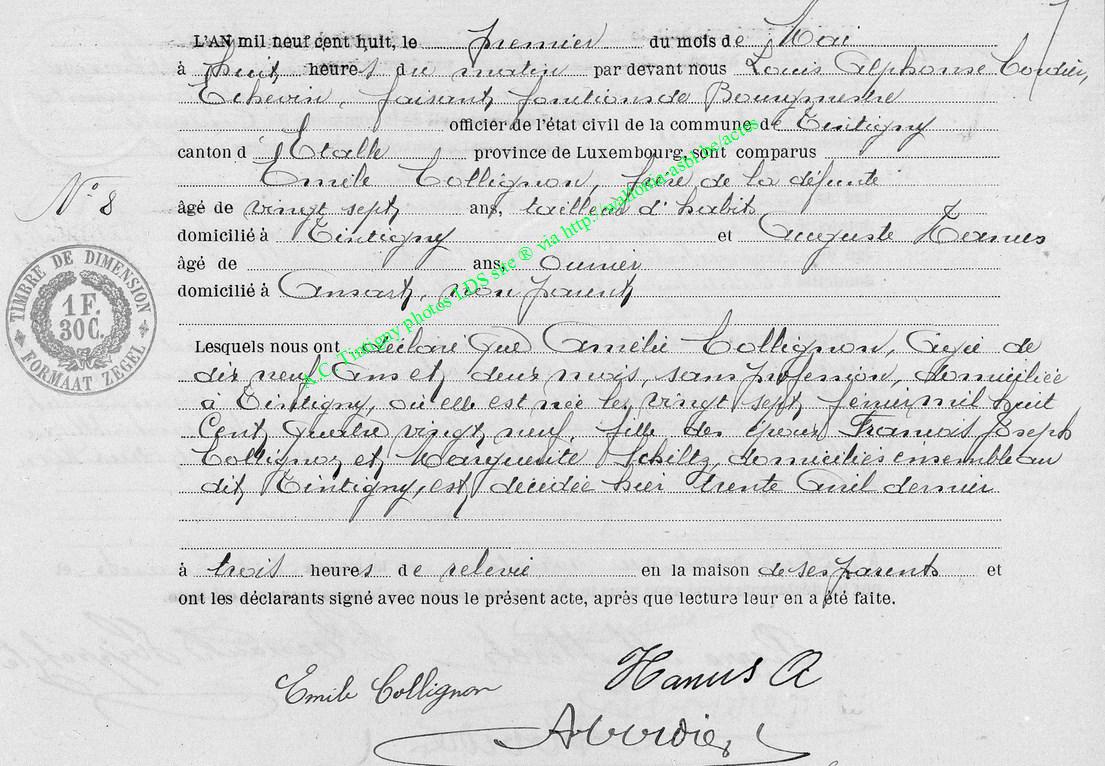 L'AN mil neuf cent huit, le premier du mois de Mai
à huit heures du matin par devant nous Louis Alphonse Cordier,
Echevin, faisant fontions de Bourgmestre
officier de l'état civil de la commune de Tintigny
canton d'Etalle province de Luxembourg, sont comparus
Emile Collignon, frère de la défunte
N° 8
âgé de vingt sept ans, tailleur d'habits
domicilié à Tintigny et Auguste Hanus
âgé de ans, ouvrier
domicilié à Ansart, non parent
TIMBRE DE DIMENSION
1 F.
30 C.
FORMAAT ZEGEL
Lesquels nous ont déclaré que Amélie Collignon, agée de
dix neuf ans et deux mois, sans profession, domiciliée
à Tintigny, où elle est née le vingt sept février mil huit
cent quatre vingt neuf, fille des époux François Joseph
Collignon et Marguerite Schiltz, domiciliés ensemble au
dit Tintigny, est décédée hier trente avril dernier
à trois heures de relevée en la maison de ses parents et
ont les déclarants signé avec nous le présent acte, après que lecture leur en a été faite.
Emile Collignon Hanus A
ACordier
A.C. Tintigny photos LDS site ® via http://wallonia-asbl.be/actes